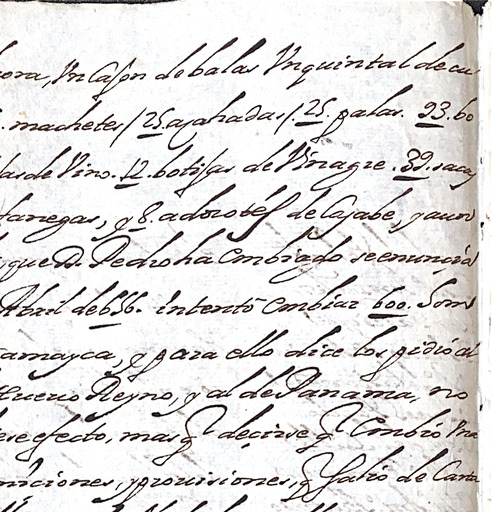 ora, Un Cajon de balas Un quintal de cu
machetes / 25. azahadas /. 25. palas. 93. bo
las de Vino. 12. botijas de Vinagre. 39. sacas
fanegas, y 8. adoro tes de Casabe, y aun
que D. Pedro ha Embiado se enuncia
Abril de 656. intentó Embiar 600. hom
amayca, y para ello dice los pidió al
Nuevo Reyno, y al de Panama, no
ese efecto, mas q decirse q Embió Un
niciones, y provisiones, q salio de Carta